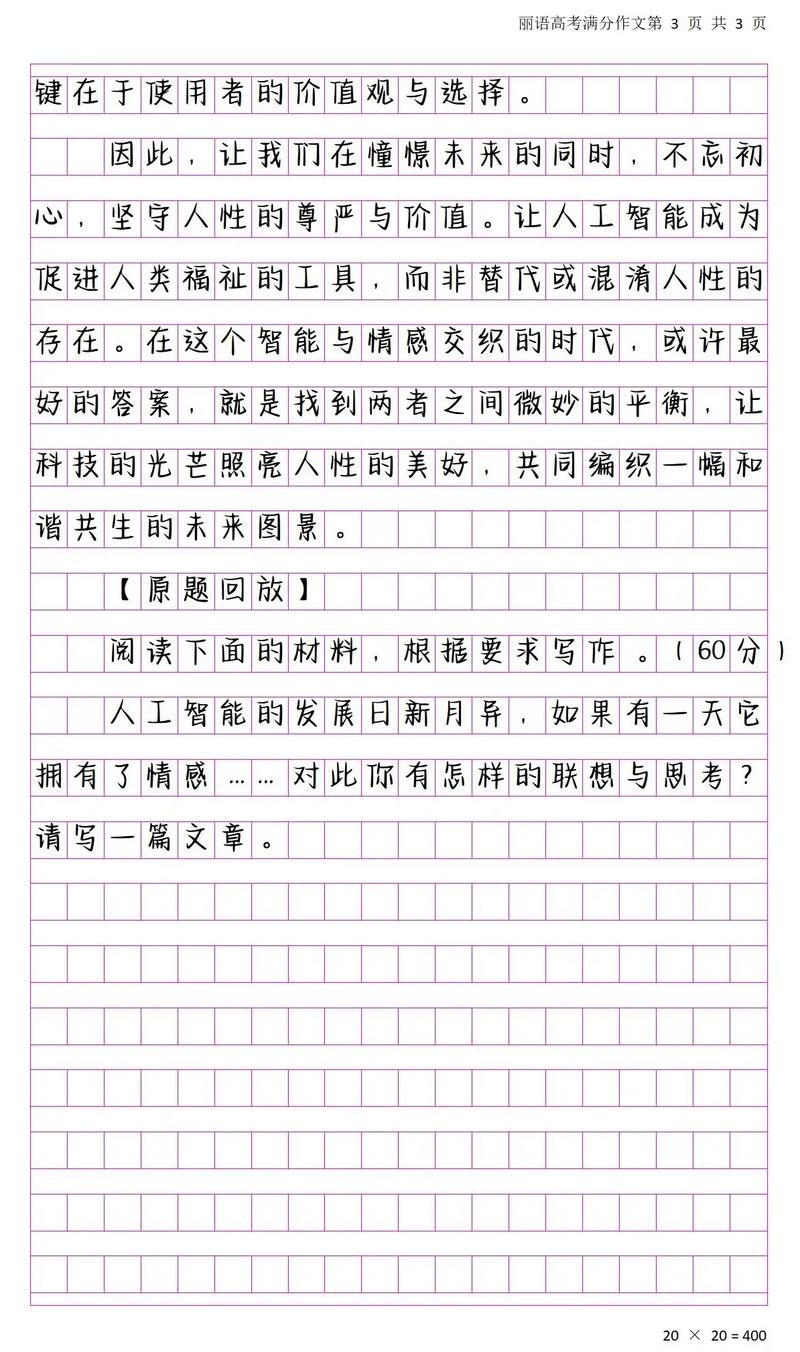 丽语高考满分作文第 3 页 共 3 页
键在于使用者的价值观与选择。
因此，让我们在憧憬未来的同时，不忘初
心，坚守人性的尊严与价值。让人工智能成为
促进人类福祉的工具，而非替代或混淆人性的
存在。在这个智能与情感交织的时代，或许最
好的答案，就是找到两者之间微妙的平衡，让
科技的光芒照亮人性的美好，共同编织一幅和
谐共生的未来图景。
【原题回放】
阅读下面的材料，根据要求写作。（60分）
人工智能的发展日新月异，如果有一天它
拥有了情感……对此你有怎样的联想与思考？
请写一篇文章。
20 × 20 = 400